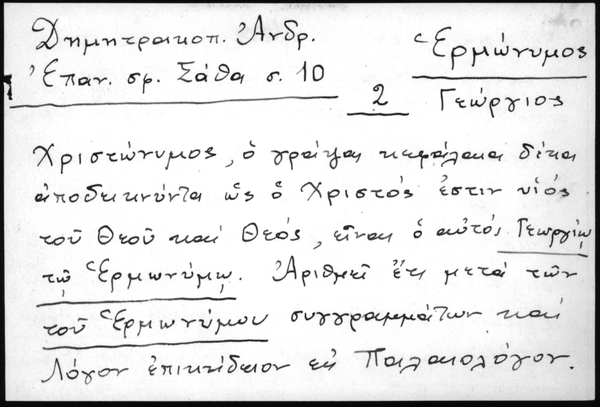 Δημητρακοπ. Ἀνδρ.
Ἐπαν. σφ. Σάθα σ. 10
Ἑρμώνυμος
2
Γεώργιος
Χριστώνυμος, ὁ γράψας κεφάλαια δέκα
ἀποδεικνύντα ὡς ὁ Χριστός ἐστιν υἱός
τοῦ Θεοῦ καί Θεός, εἶναι ὁ αὐτός Γεωργίῳ
τῷ Ἑρμωνύμῳ. Ἀριθμεῖ ἔτι μετά τῶν
τοῦ Ἑρμωνύμου συγγραμμάτων καί
Λόγον ἐπικήδειον εἰς Παλαιολόγον.